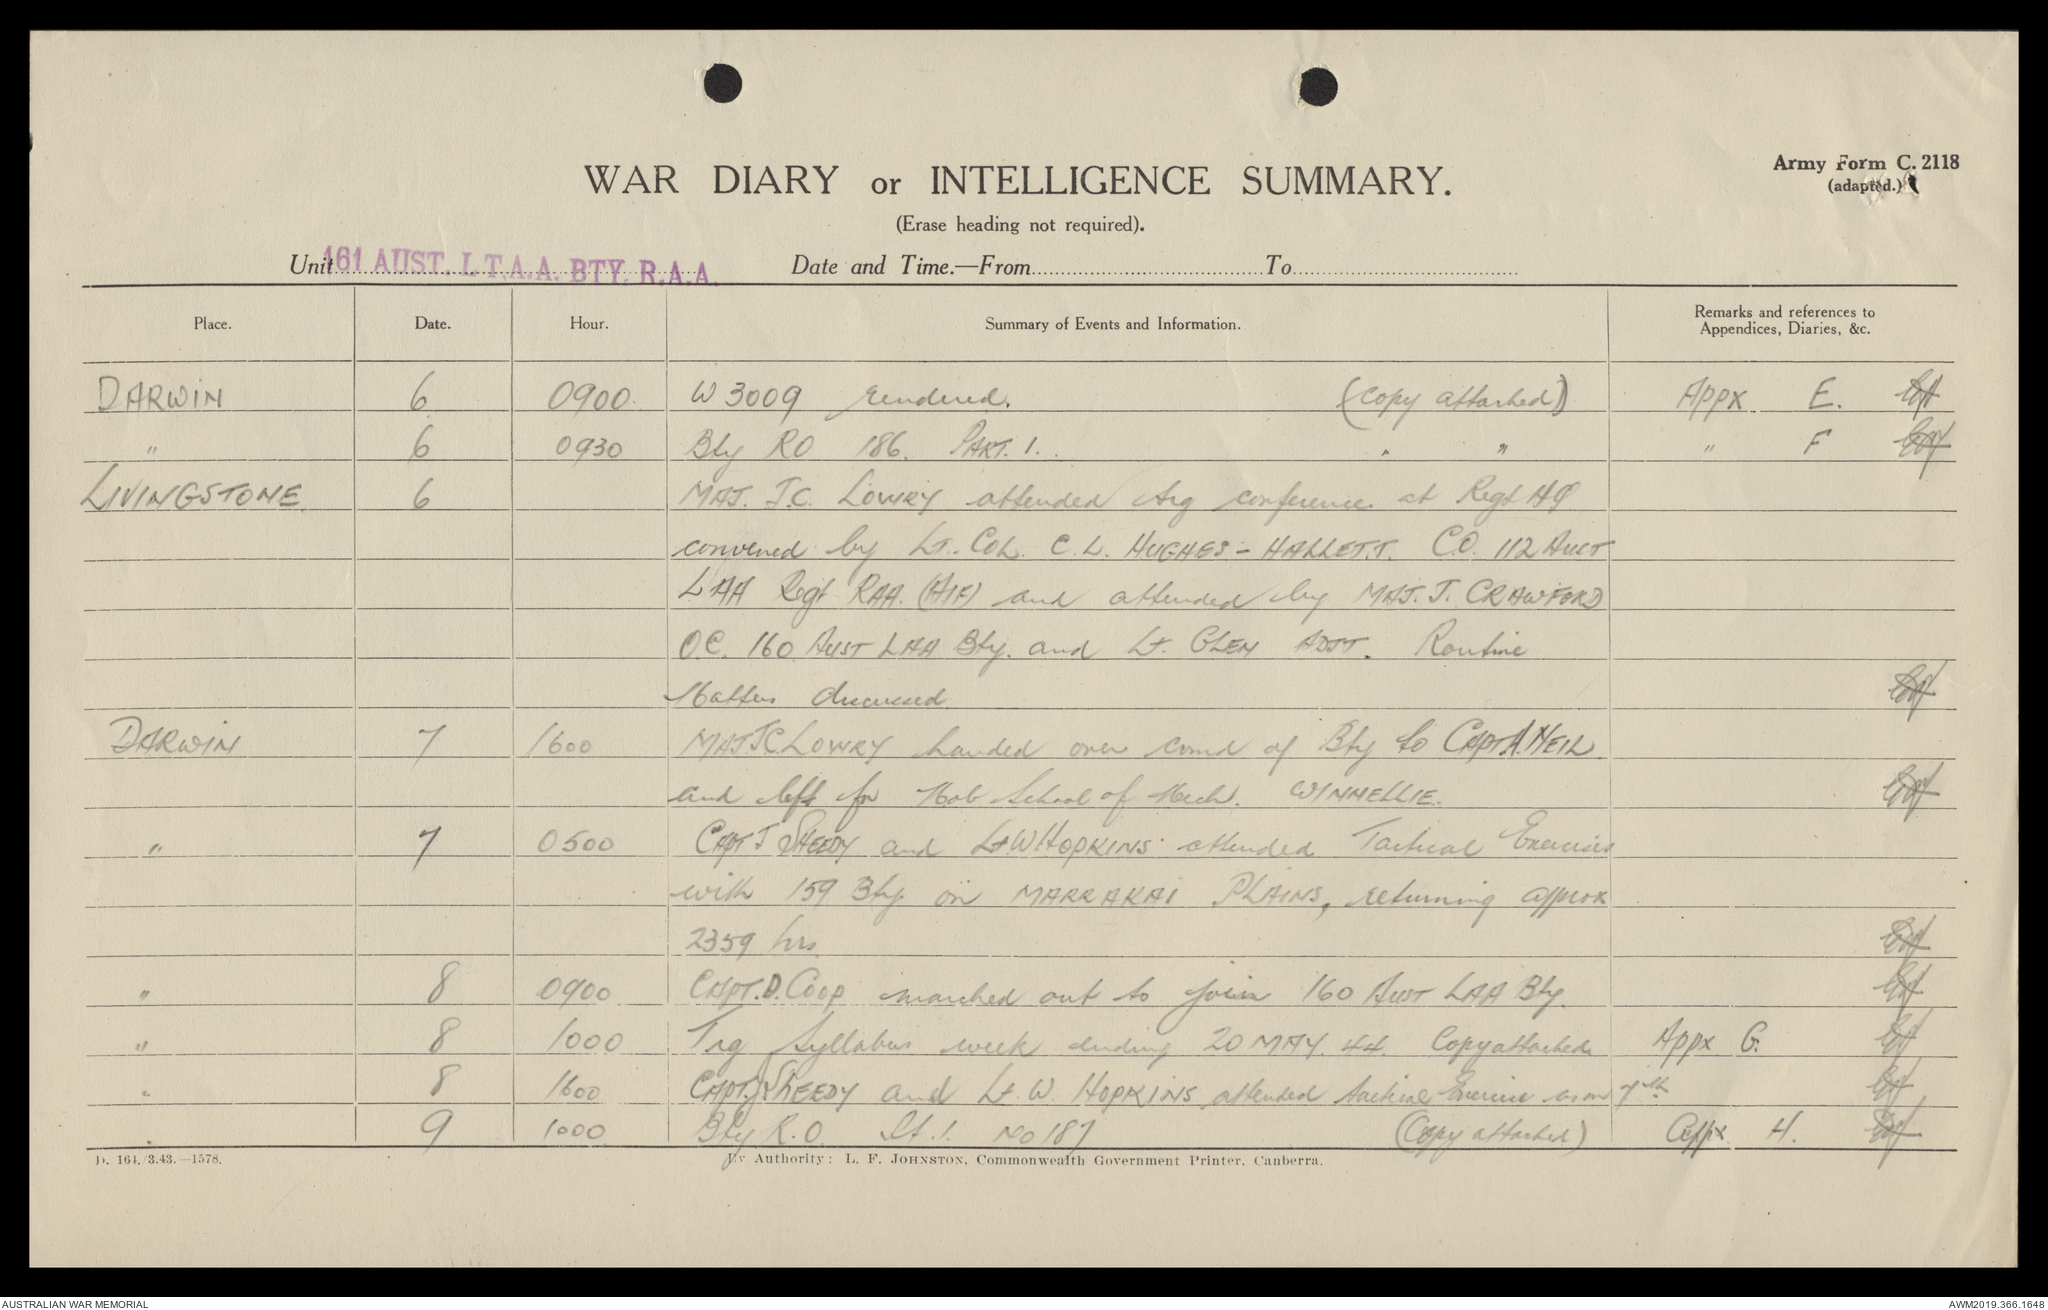 Army Form C. 2118
(adapted.)
WAR DIARY or INTELLIGENCE SUMMARY.
(Erase heading not required).
Unit 161 AUST. LT.A.A. BTY. R.A.A. Date and Time.—From To
Place. Date. Hour. Summary of Events and Information. Remarks and references to Appendices, Diaries, &c.
DARWIN 6 0900 W 3009 rendered. (Copy attached) Appx E.
" 6 0930 Bty RO 186. PART. 1. " " " F
LIVINGSTONE 6 MAJ. J.C. LOWRY attended trg conference at Regt HQ
convened by LT. COL. C.L. HUGHES-HALLETT. CO. 112 AUST
LAA Regt RAA. (AIF) and attended by MAJ. J. CRAWFORD
O.C. 160 AUST LAA Bty. and Lt. GLEN ADJT. Routine
Matters discussed
DARWIN 7 1600 MAJ JC LOWRY handed over comd of Bty to CAPT A. NEIL
and left for Mob School of Mech. WINNELLIE.
" 7 0500 CAPT J SHEEDY and Lt W HOPKINS attended Tactical Exercises
with 159 Bty on MARRAKAI PLAINS, returning approx
2359 hrs
" 8 0900 CAPT. D. COOP marched out to join 160 AUST LAA Bty.
" 8 1000 Trg Syllabus week ending 20 MAY. 44. Copy attached Appx G.
" 8 1600 CAPT. J SHEEDY and Lt. W. HOPKINS attended tactical Exercise as on 7th
" 9 1000 Bty R.O. Pt. 1. No 187 (Copy attached) Appx H.
D. 164./3.43.—1578. By Authority: L. F. JOHNSTON, Commonwealth Government Printer, Canberra.
AUSTRALIAN WAR MEMORIAL AWM2019.366.1648